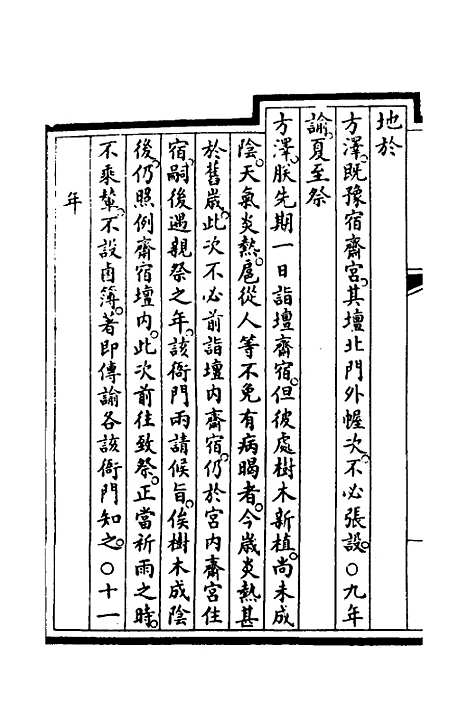 地於
方澤。既豫宿齋宮。其壇北門外幄次。不必張設。○九年
諭。夏至祭
方澤。朕先期一日詣壇齋宿。但彼處樹木新植。尚未成
陰。天氣炎熱。扈從人等不免有病暍者。今歲炎熱甚
於舊歲。此次不必前詣壇內齋宿。仍於宮內齋宮住
宿。嗣後遇親祭之年。該衙門兩請候旨。俟樹木成陰
後。仍照例齋宿壇內。此次前往致祭。正當祈雨之時。
不乘輦。不設鹵簿。著即傳諭各該衙門知之。○十一
年